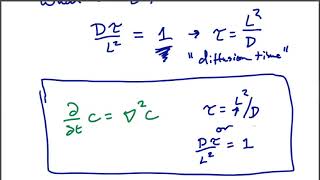 Dτ/L² = 1 → τ = L²/D
"diffusion time"
∂/∂t C = ∇²C
τ = L²/D
or
Dτ/L² = 1